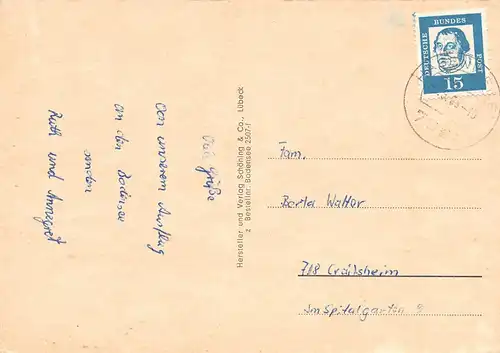 Viele Grüße
von unserem Ausflug
an den Bodensee
senden
Ruth und Annegret
Hersteller und Verlag Schöning & Co., Lübeck
z Bestellnr. Bodensee 2507-f
DEUTSCHE BUNDES POST
15
Fam.
Walter
718 Crailsheim
Im Spitalgarten